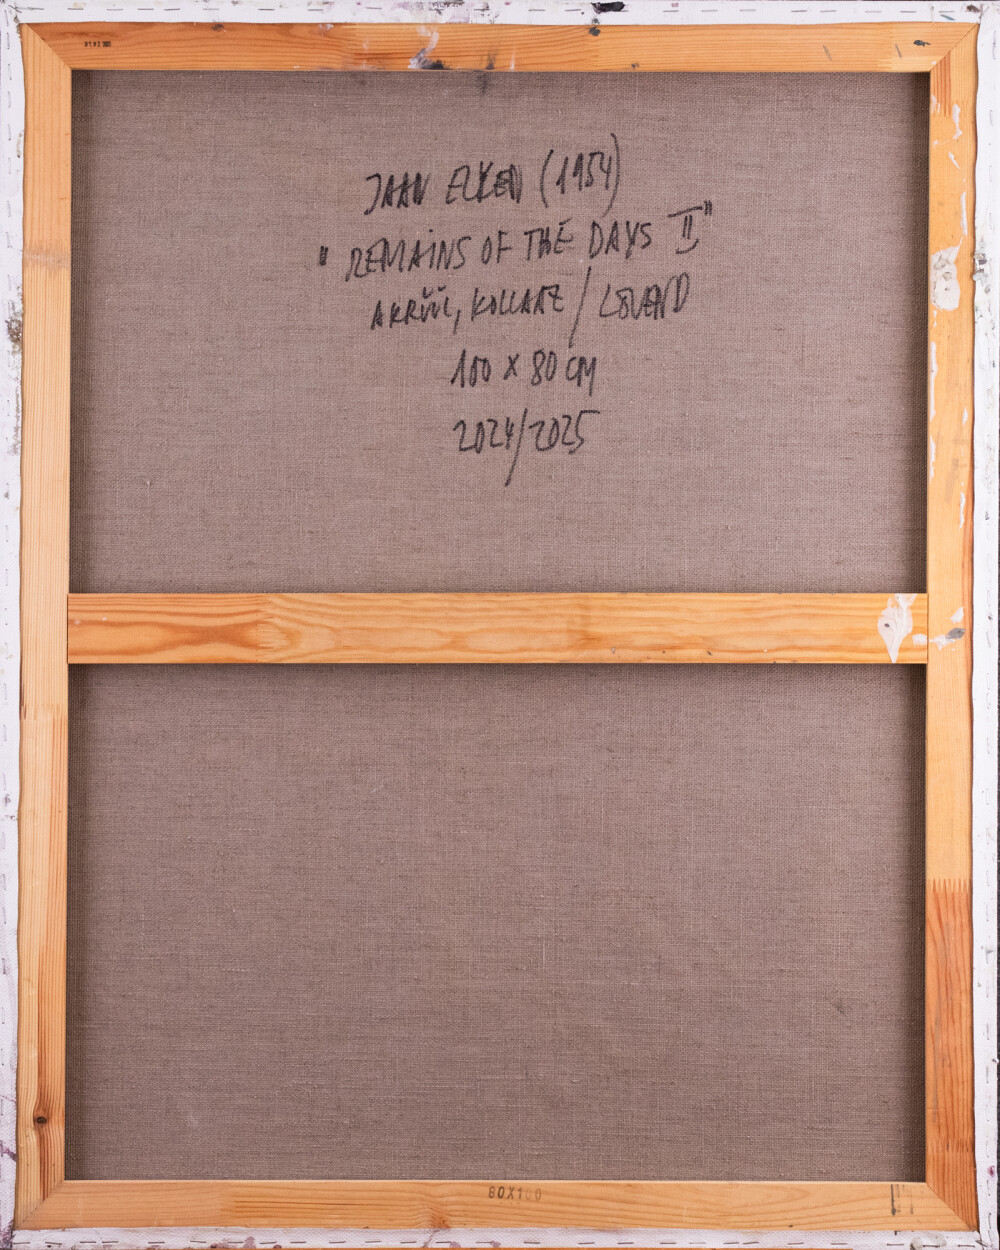 JAAN ELKEN (1954)
"REMAINS OF THE DAYS II"
AKRÜÜL, KOLLAAŽ / LÕUEND
100 X 80 CM
2024/2025
80X100